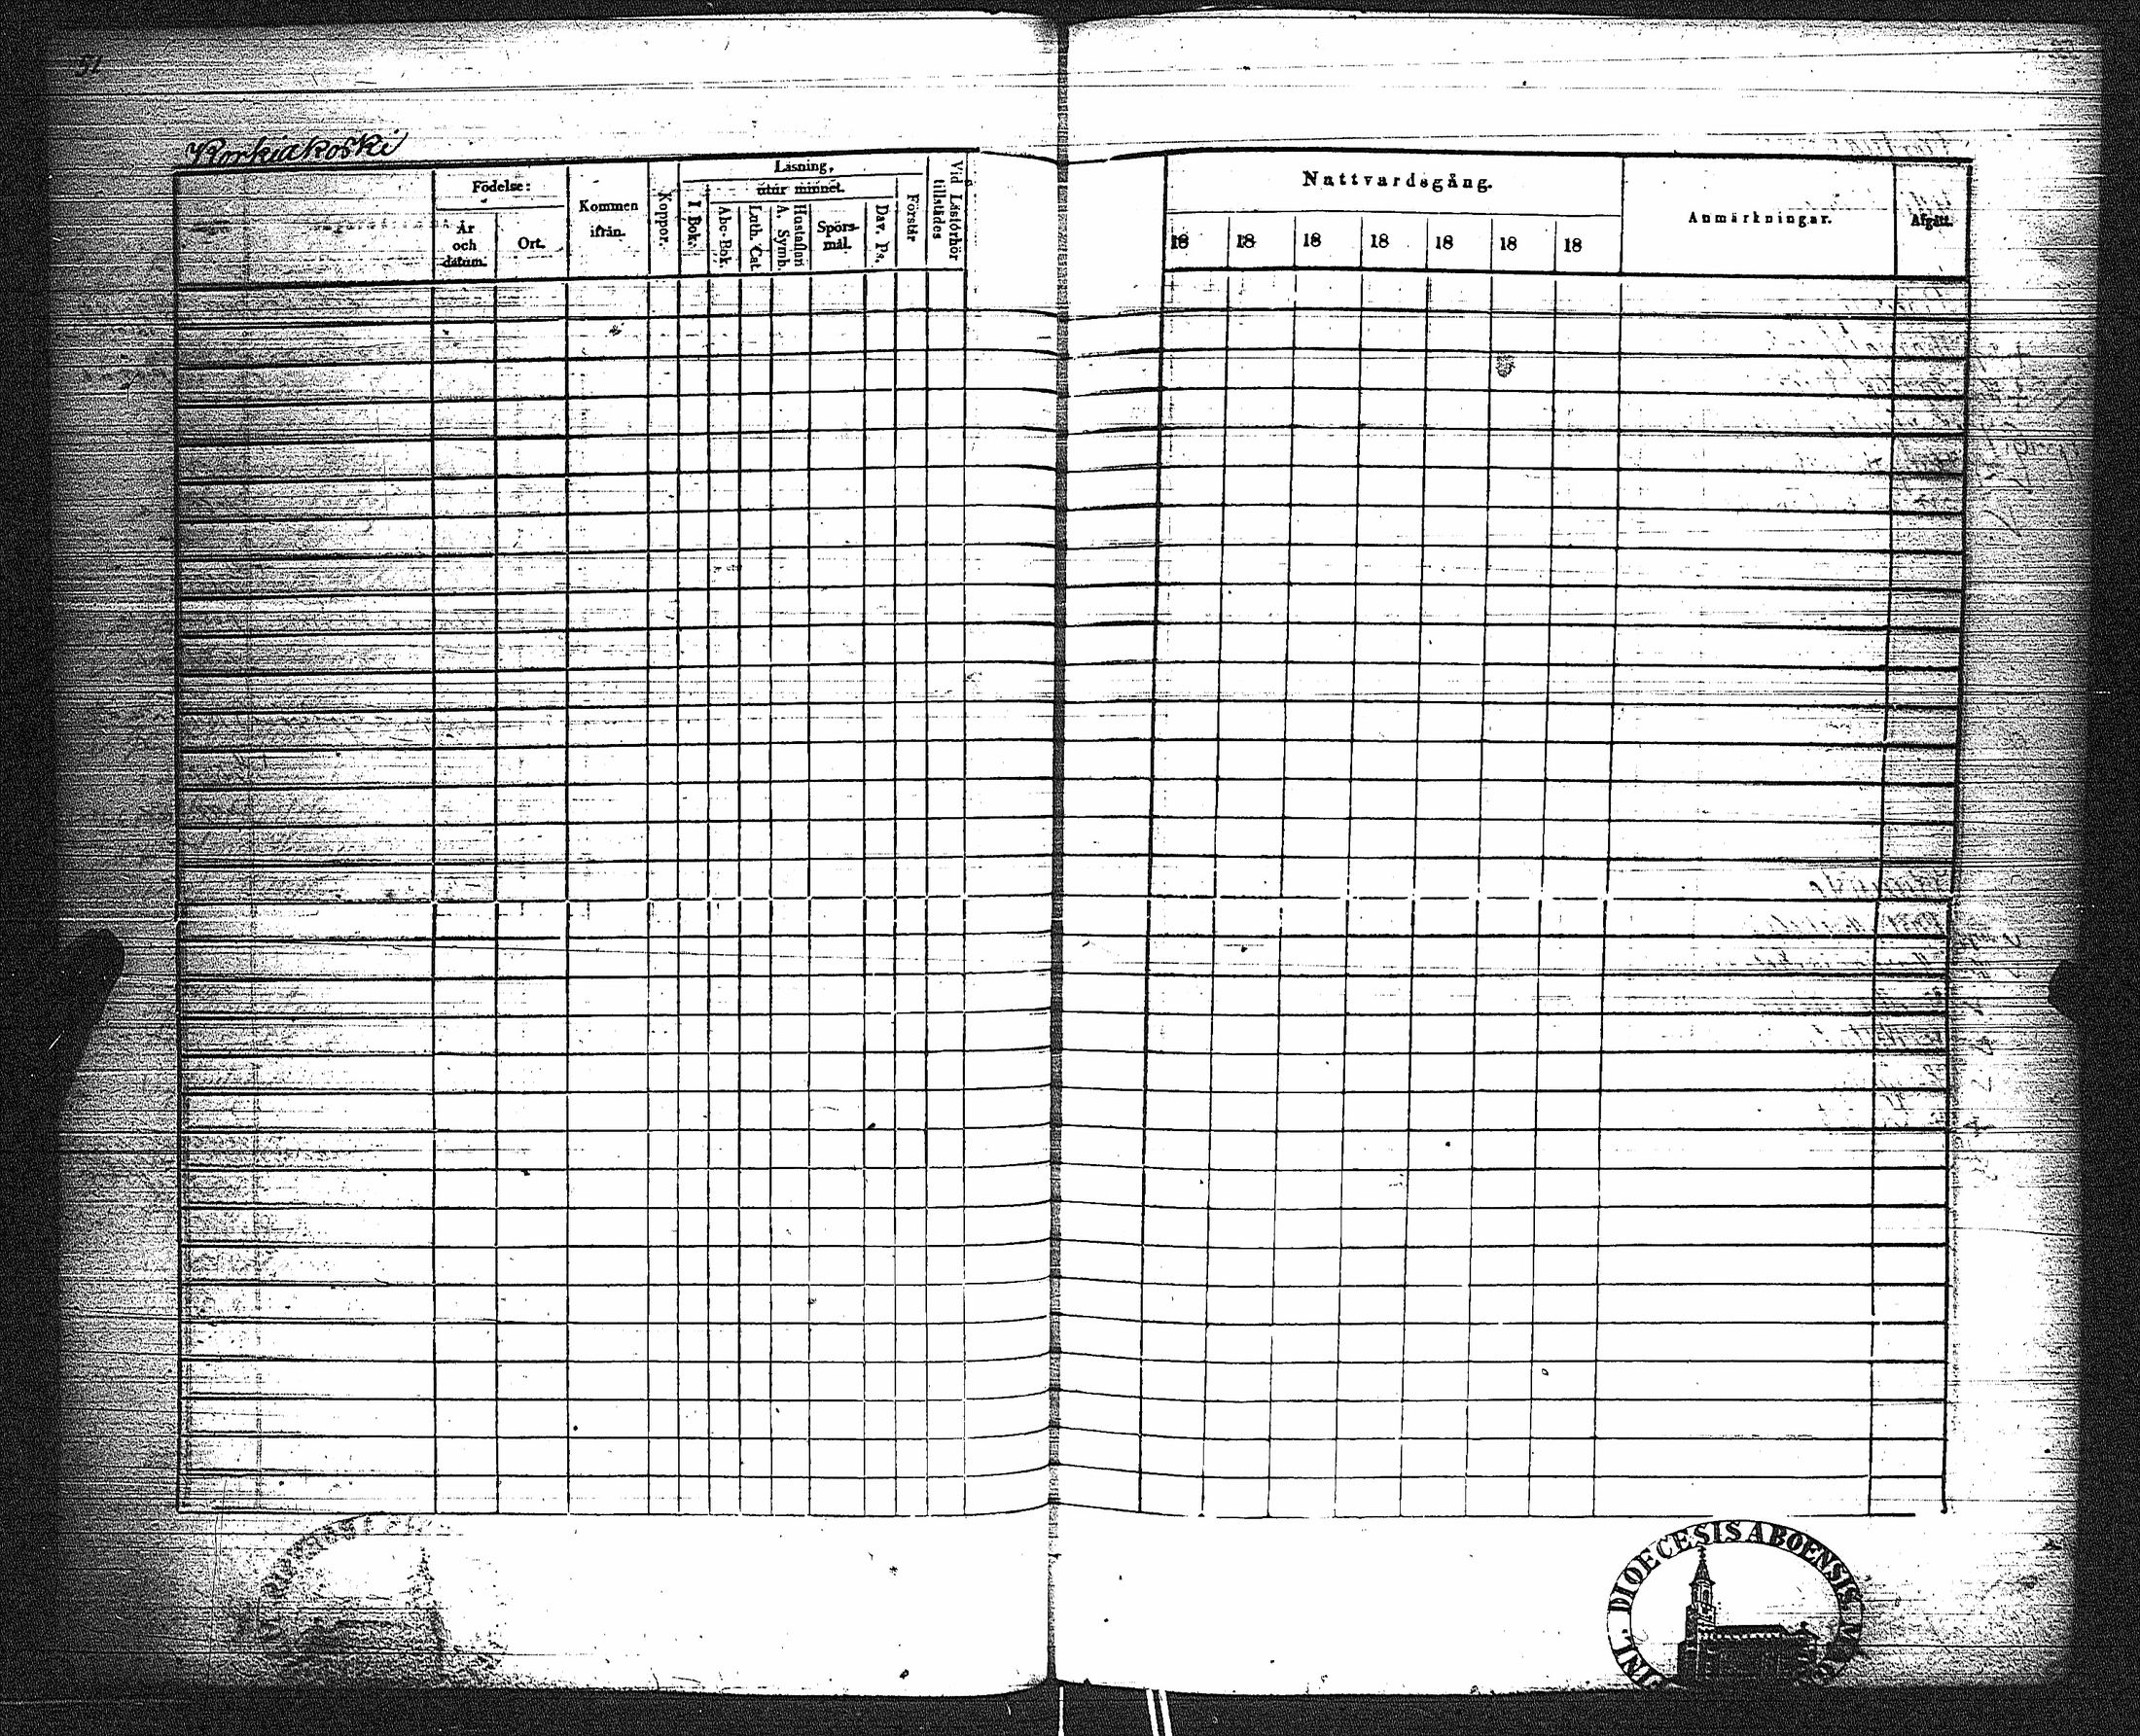 51
Korkiakoski
Födelse:
År och datum.
Ort.
Kommen ifrån.
Koppor.
Läsning,
utur minnet.
I Bok.
Abc-Bok.
Luth. Cat.
Hustaflan A. Symb.
Spörsmål.
Dav. Ps.
Förstår
Vid Läsförhör tillstädes
Nattvardsgång.
18 18 18 18 18 18 18
Anmärkningar.
Afgått.
DIOECESIS ABOENSIS